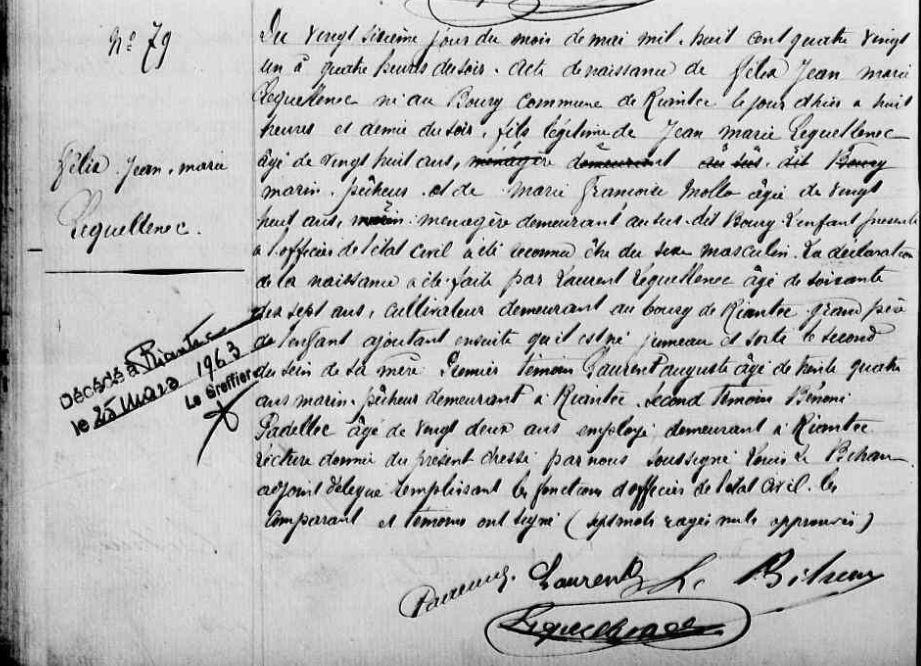 N° 79
Félix Jean, marie
Lequellenec.
Décédé à Riantec
le 25 Mars 1963
Le Greffier
Du vingt sixieme jour du mois de mai mil. huit cent quatre vingt
un à quatre heures du soir. Acte de naissance de Félix Jean marie
Lequellenec né au Bourg commune de Riantec le jour d'hier a huit
heures et demie du soir, fils légitime de Jean Marie Lequellenec
âgé de vingt huit ans, ménagère demeurant au sus. dit Bourg
marin. pêcheur et de Marie Françoise Mollo âgée de vingt
huit ans, marin. menagère demeurant au sus. dit Bourg. L'enfant presenté
a l'officier de l'état civil a été reconnu être du sexe masculin. La déclaration
de la naissance a été faite par Laurent Lequellenec âgé de soixante
dix sept ans, cultivateur demeurant au bourg de Riantec grand père
de l'enfant ajoutant ensuite qu'il est né jumeau et sorti le second
du sein de sa mère Premier témoin Laurent auguste âgé de trente quatre
ans marin. pêcheur demeurant à Riantec. second Temoin Bénoni
Padellec âgé de vingt deux ans employé demeurant à Riantec
Lecture donnée du présent dressé par nous soussigné Louis Le Bihan
adjoint délegué remplissant les fonctions d'officier de l'état civil. les
Comparant et temoins ont signé (sept mots rayés nuls approuvés)
Laurent Le Bihan
Lequellenec